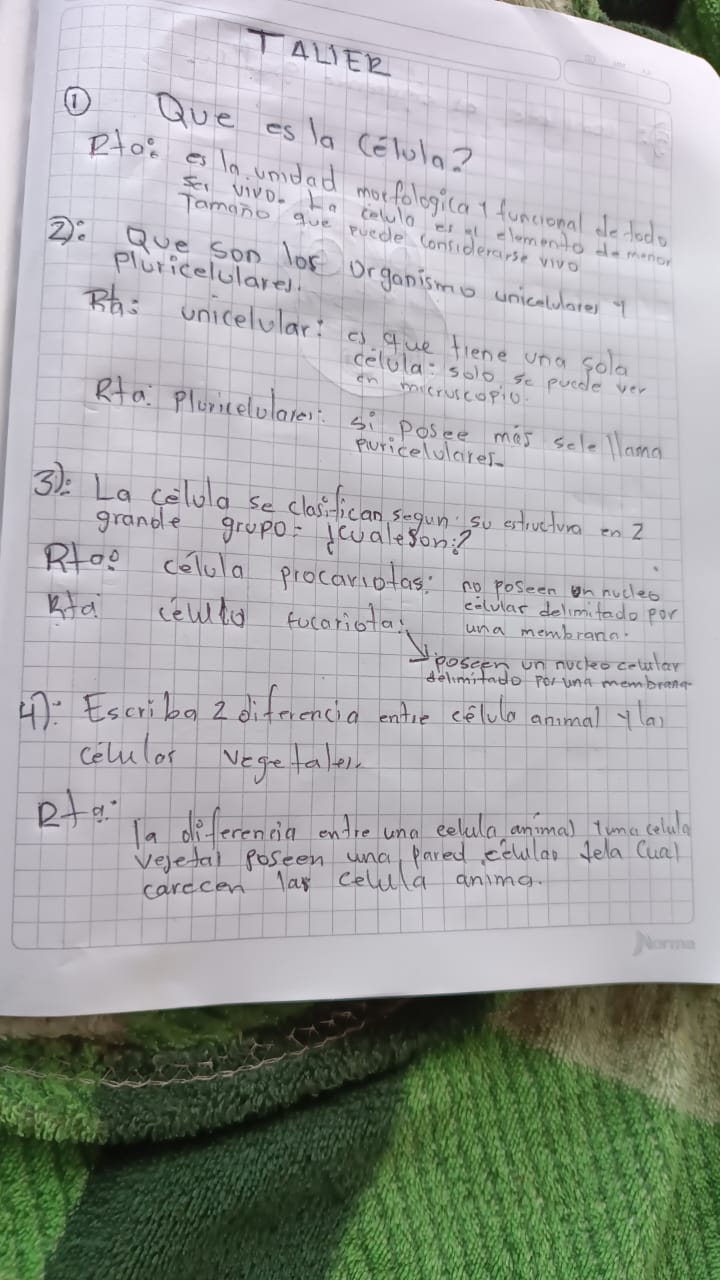 TALLER
① Que es la célula?
Rta: es la unidad morfologica y funcional de todo
ser vivo. La celula es el elemento de menor
Tamaño que puede considerarse vivo
2): Que son los organismo unicelulares y
Pluricelulares.
Rta: unicelular: es que tiene una sola
célula: solo se puede ver
en microscopio.
Rta: Pluricelulares: si posee más sele llama
puricelulares.
3): La célula se clasifican segun su estructura en 2
grande grupo= ¿cualeson:?
Rta: célula procariotas: no poseen un nucleo
célular delimitado por
una membrana.
Rta célula Eucariota:
poseen un nucleo celular
delimitado por una membrana
4): Escriba 2 diferencia entre célula animal y las
célular vegetales.
Rta: la diferencia entre una celula animal y una celula
vejetal poseen una Pared célular dela Cual
carecen las celula anima.
Norma